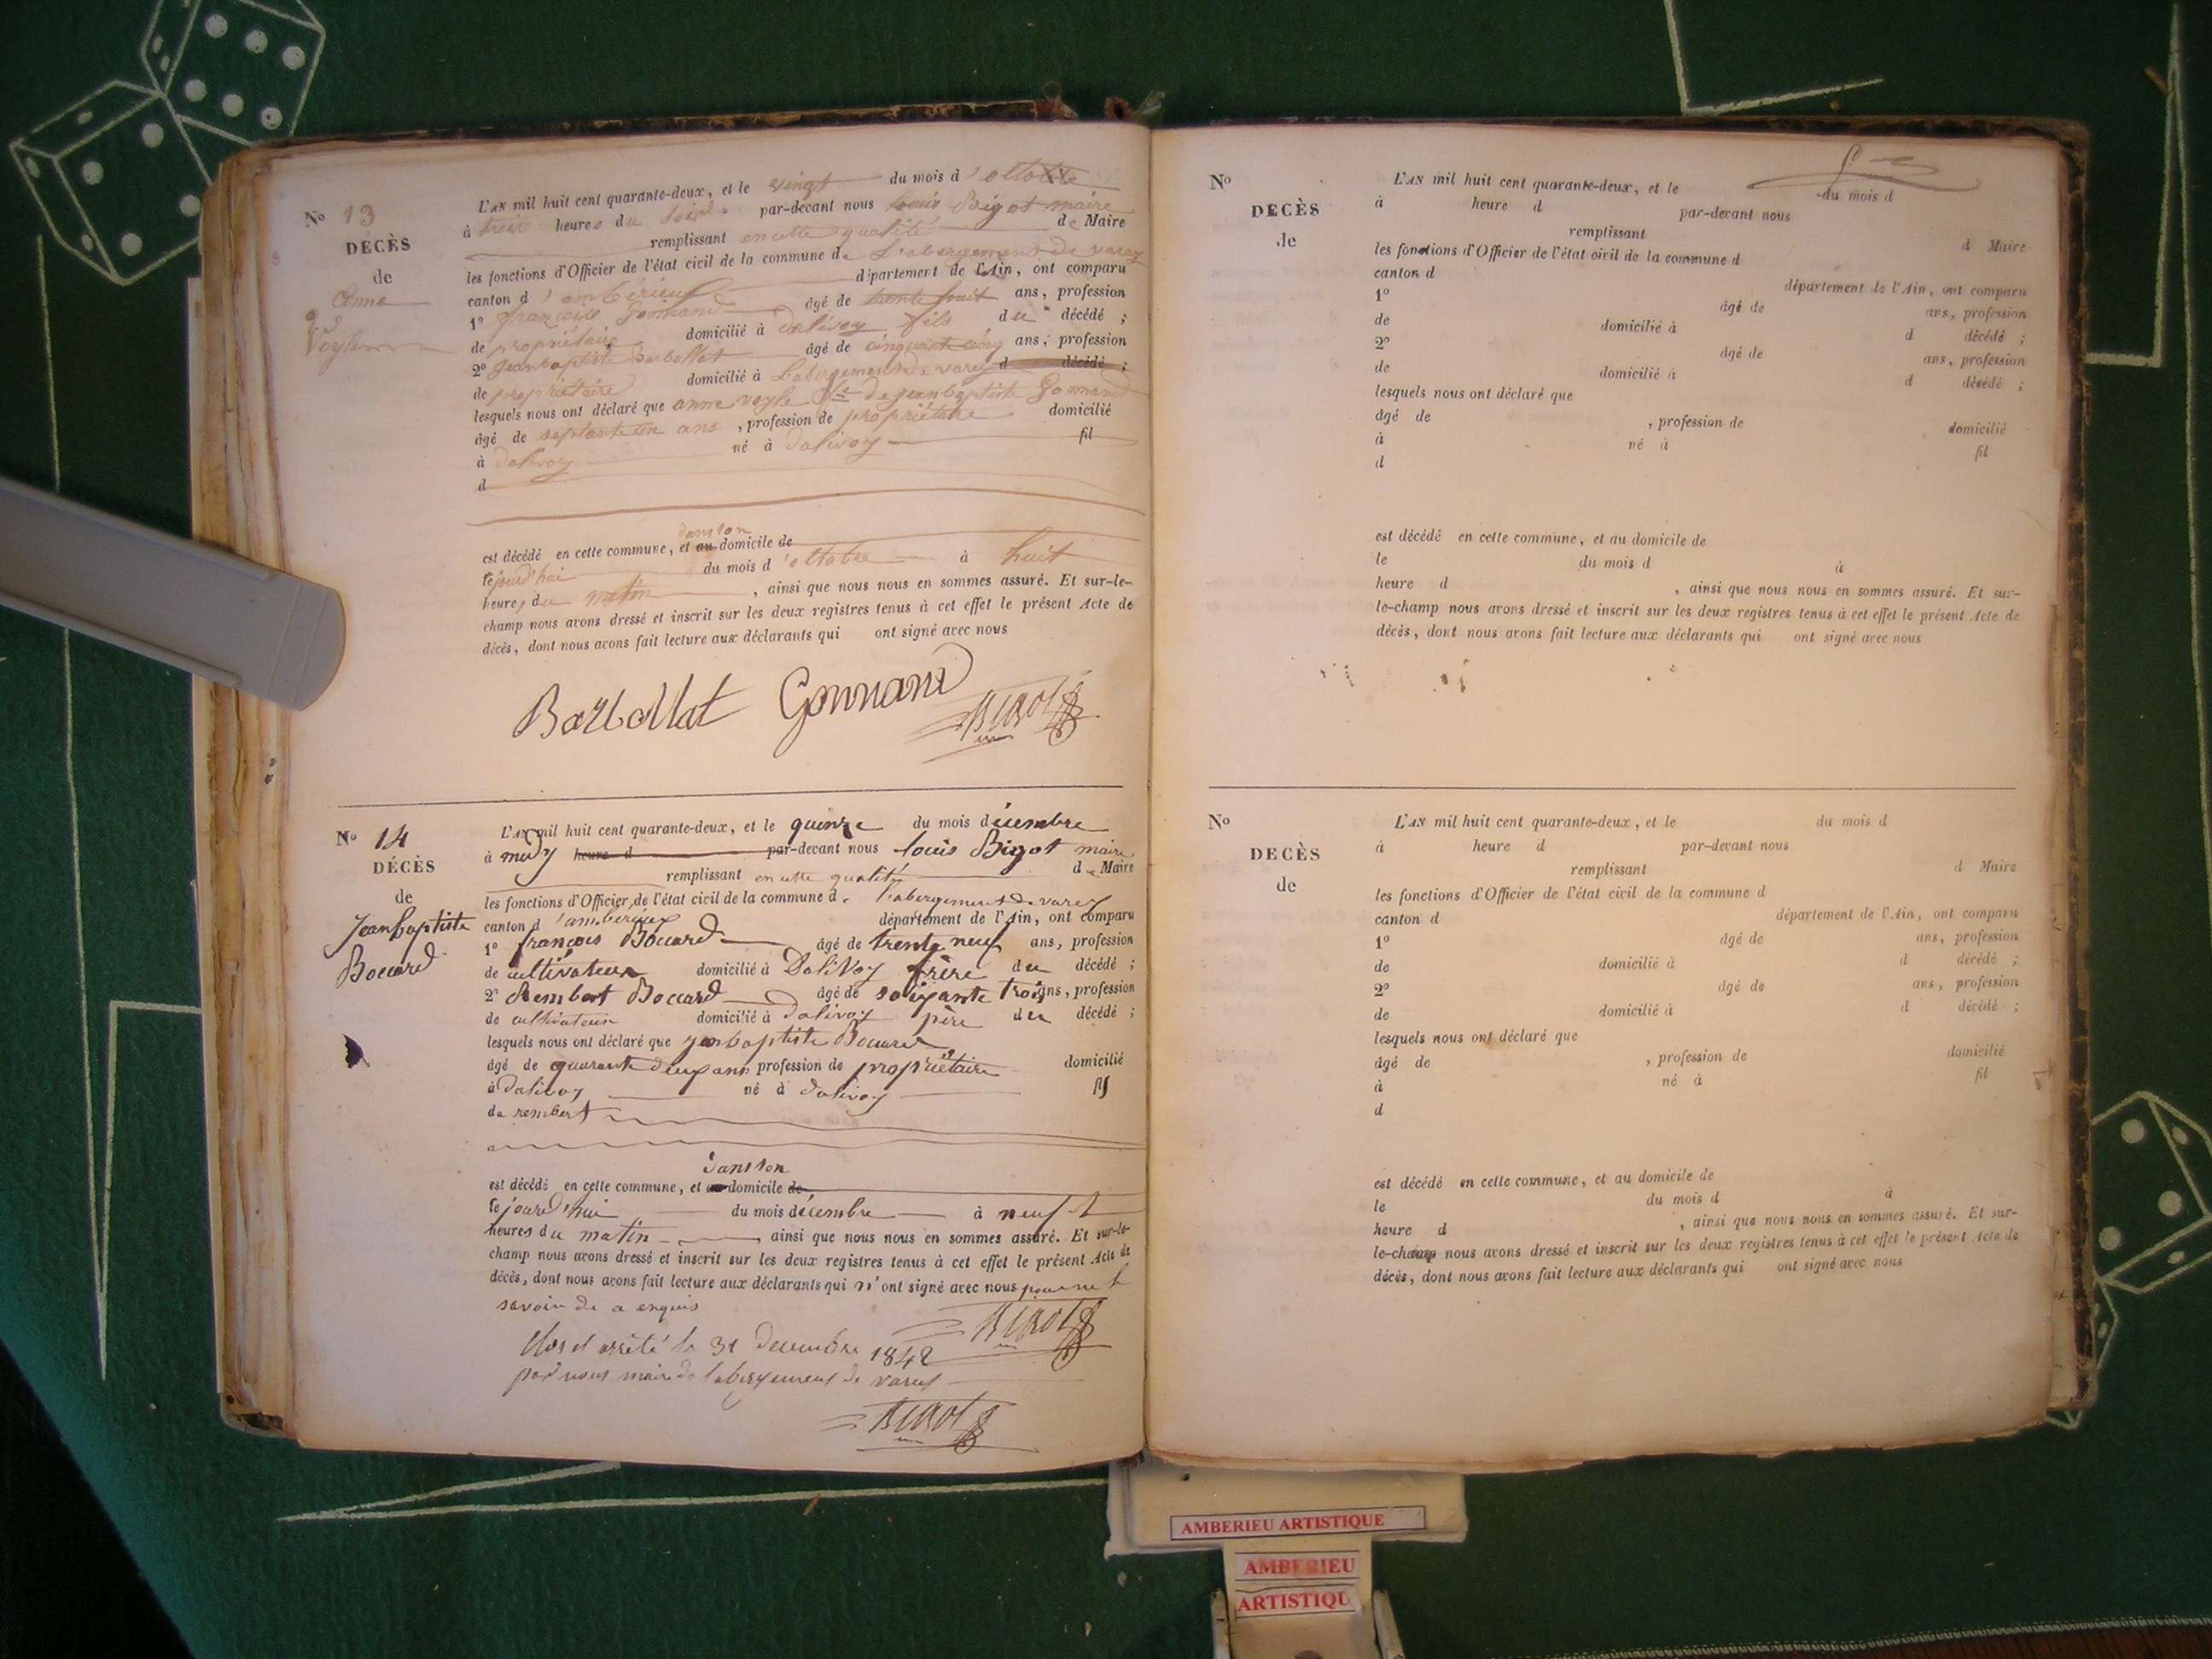 No 13
DÉCÈS
de
Anne
Voyle
L'AN mil huit cent quarante-deux, et le vingt du mois d'octobre
à trois heures du soir par-devant nous Louis Bigot maire
remplissant en cette qualité de Maire
les fonctions d'Officier de l'état civil de la commune de L'abergement de varey
canton d'ambérieux département de l'Ain, ont comparu
1º françois Gonnand âgé de trente huit ans, profession
de propriétaire domicilié à dalivoy fils du décédé ;
2º Jeanbaptiste Barbollat âgé de cinquant cinq ans, profession
de propriétaire domicilié à Labergement de varey d décédé ;
lesquels nous ont déclaré que anne voyle de jeanbaptiste Gonnand
âgé de septante un ans , profession de propriétaire domicilié
à dalivoy né à dalivoy fil
d
dans son
est décédé en cette commune, et au domicile de
le jourd'hui du mois d'octobre à huit
heures du matin , ainsi que nous nous en sommes assuré. Et sur-le-
champ nous avons dressé et inscrit sur les deux registres tenus à cet effet le présent Acte de
décès, dont nous avons fait lecture aux déclarants qui ont signé avec nous
Barbollat Gonnand Bigot
No 14
DÉCÈS
de
Jeanbaptiste
Boccard
L'AN mil huit cent quarante-deux, et le quinze du mois décembre
à midy heure d par-devant nous Louis Bigot maire
remplissant en cette qualité de Maire
les fonctions d'Officier de l'état civil de la commune de l'abergement de varey
canton d'ambérieux département de l'Ain, ont comparu
1º françois Boccard âgé de trente neuf ans, profession
de cultivateur domicilié à Dalivoy frère du décédé ;
2º Rembert Boccard âgé de soixante trois ans, profession
de cultivateur domicilié à dalivoy père du décédé ;
lesquels nous ont déclaré que jeanbaptiste Boccard
âgé de quarante deux ans profession de propriétaire domicilié
à dalivoy né à dalivoy fils
de rembert
dans son
est décédé en cette commune, et au domicile de
le jourd'hui du mois décembre à neuf
heures du matin ainsi que nous nous en sommes assuré. Et sur-le-
champ nous avons dressé et inscrit sur les deux registres tenus à cet effet le présent Acte de
décès, dont nous avons fait lecture aux déclarants qui n'ont signé avec nous pour ne
savoir de a enquis
Bigot
Clos et arrêté le 31 decembre 1842
par nous maire de labergement de varey
Bigot
No
DECÈS
de
L'AN mil huit cent quarante-deux, et le du mois d
à heure d par-devant nous
remplissant d Maire
les fonctions d'Officier de l'état civil de la commune d
canton d département de l'Ain, ont comparu
1º âgé de ans, profession
de domicilié à d décédé ;
2º âgé de ans, profession
de domicilié à d décédé ;
lesquels nous ont déclaré que
âgé de , profession de domicilié
à né à fil
d
est décédé en cette commune, et au domicile de
le du mois d à
heure d , ainsi que nous nous en sommes assuré. Et sur-
le-champ nous avons dressé et inscrit sur les deux registres tenus à cet effet le présent Acte de
décès, dont nous avons fait lecture aux déclarants qui ont signé avec nous
No
DECÈS
de
L'AN mil huit cent quarante-deux, et le du mois d
à heure d par-devant nous
remplissant d Maire
les fonctions d'Officier de l'état civil de la commune d
canton d département de l'Ain, ont comparu
1º âgé de ans, profession
de domicilié à d décédé ;
2º âgé de ans, profession
de domicilié à d décédé ;
lesquels nous ont déclaré que
âgé de , profession de domicilié
à né à fil
d
est décédé en cette commune, et au domicile de
le du mois d à
heure d , ainsi que nous nous en sommes assuré. Et sur-
le-champ nous avons dressé et inscrit sur les deux registres tenus à cet effet le présent Acte de
décès, dont nous avons fait lecture aux déclarants qui ont signé avec nous
AMBERIEU ARTISTIQUE
AMBERIEU
ARTISTIQU